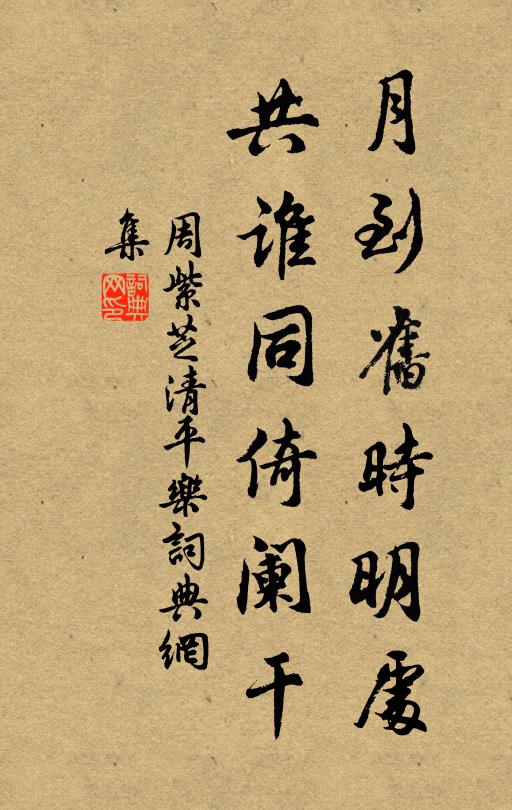 月到舊時明處
共誰同倚阑干
周紫芝清平樂詞典網
集
詞典网印